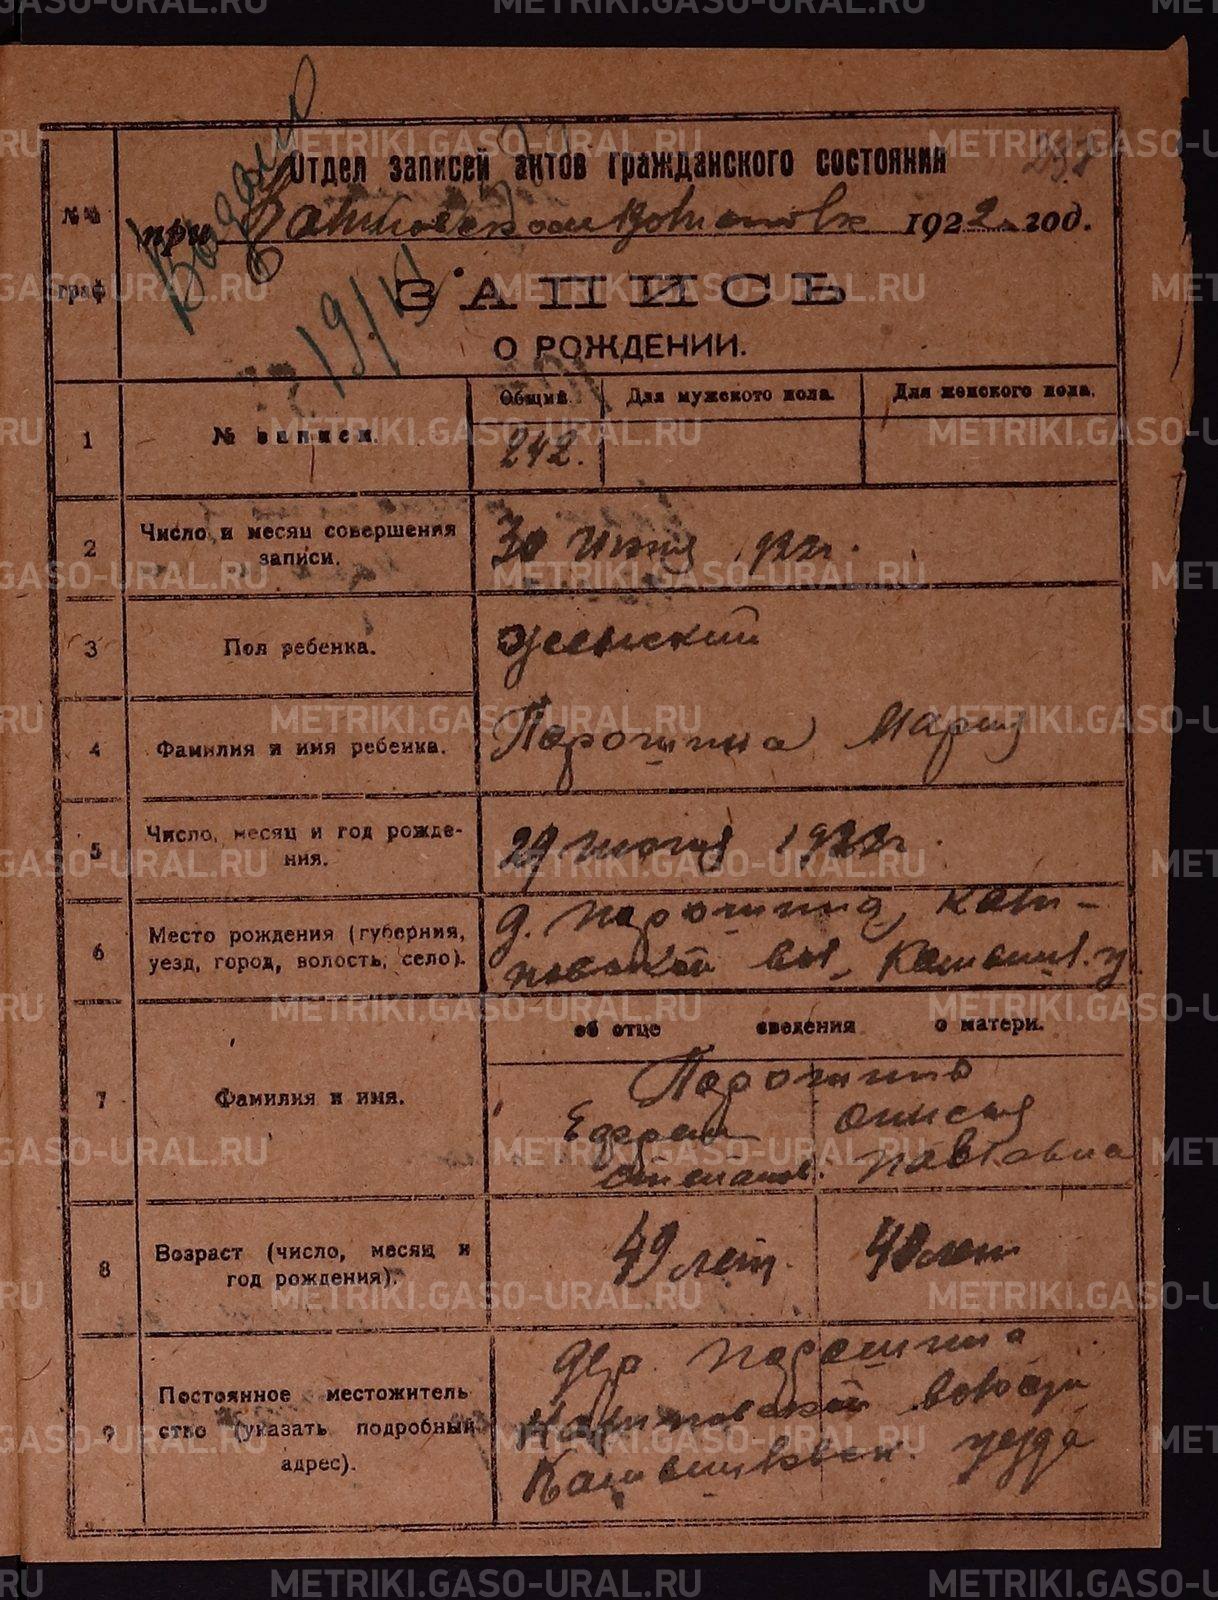 Выдано
19/IV
Отдел записей актов гражданского состояния
№№ граф
при волисполк 1922 год.
ЗАПИСЬ
О РОЖДЕНИИ.
Общий. Для мужского пола. Для женского пола.
1 № записи. 242.
2 Число и месяц совершения
записи.
30 Июня 1922г.
3 Пол ребенка. женский
4 Фамилия и имя ребенка. Порошина Мария
5 Число, месяц и год рожде-
ния.
29 июня 1922г.
6 Место рождения (губерния,
уезд, город, волость, село).
д. Порошина,
вол. Камышл. у.
об отце сведения о матери.
7 Фамилия и имя.
Порошины
Ефрем
Степанов. Павловна
8 Возраст (число, месяц и
год рождения).
49 лет. 40 лет
9 Постоянное местожитель
ство (указать подробный
адрес).
дер. Порошина
волости
Камышловск. уезда
METRIKI.GASO-URAL.RU